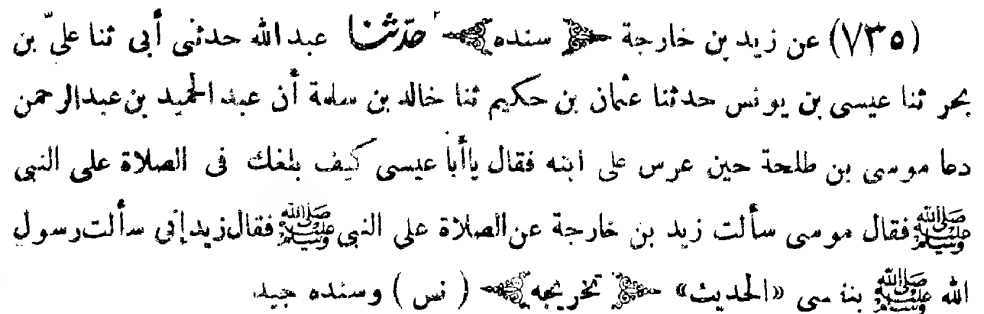 (٧٣٥) عن زيد بن خارجة ﴿ سنده ﴾ حدثنا عبد الله حدثنى أبى ثنا علىّ بن
بحر ثنا عيسى بن يونس حدثنا عثمان بن حكيم ثنا خالد بن سلمة أن عبد الحميد بن عبد الرحمن
دعا موسى بن طلحة حين عرس على ابنه فقال ياأبا عيسى كيف بلغك فى الصلاة على النبى
ﷺ فقال موسى سألت زيد بن خارجة عن الصلاة على النبى ﷺ فقال زيد إنى سألت رسول
الله ﷺ بنفسى «الحديث» ﴿ تخريجه ﴾ ( نس ) وسنده جيد